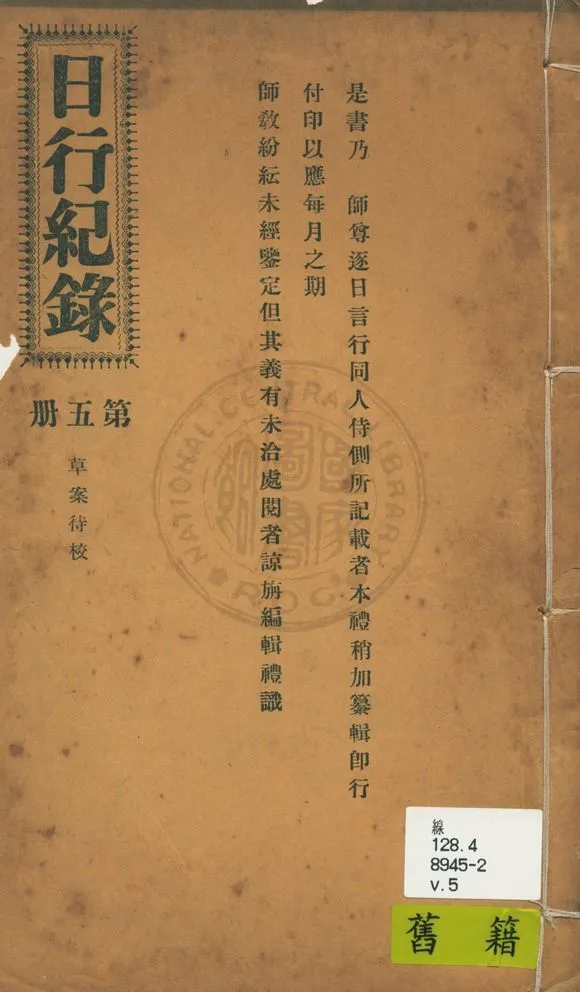 是書乃　師尊逐日言行同人侍側所記載者本禮稍加纂輯即行
付印以應每月之期
師教紛紜未經鑒定但其義有未洽處閱者諒旃編輯禮識
日行紀錄
第五册
草案待校
NATIONAL CENTRAL LIBRARY
國家圖書館
R.O.C.
線
128.4
8945-2
v.5
舊籍